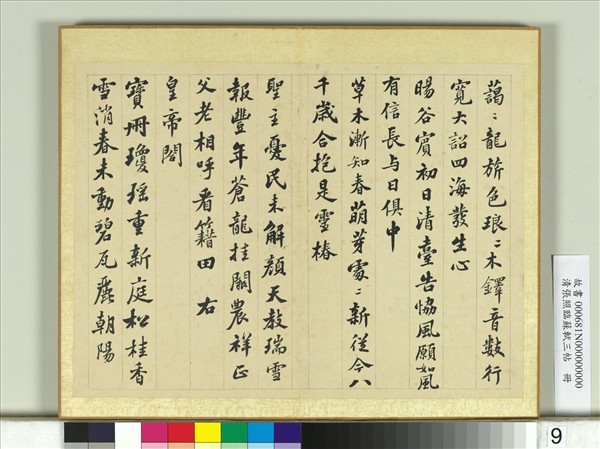 藹〻龍旂色琅〻木鐸音數行
寬大詔四海發生心
暘谷賓初日清臺告協風願如風
有信長与日俱中
草木漸知春萌芽處〻新從今八
千歲合抱是靈椿
聖主憂民未解顏天教瑞雪
報豐年蒼龍挂闕農祥正
父老相呼看籍田 右
皇帝閣
寶冊瓊瑤重新庭松桂香
雪消春未動碧瓦麗朝陽
故書 000681N000000000
清張照臨蘇軾三帖 冊
9